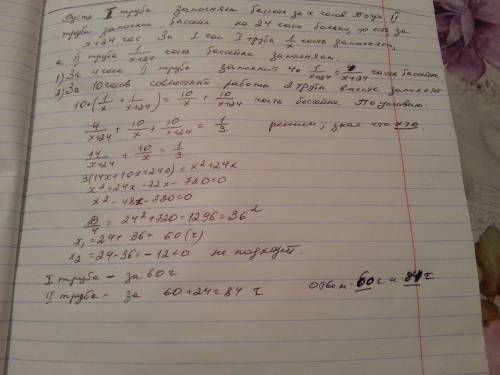 Пусть I труба заполняет бассейн за x часов. Тогда II
труба заполнит бассейн на 24 часа больше, то есть за
x+24 час. За 1 час I труба 1/x часть заполняет,
а II труба 1/(x+24) часть бассейна заполняет.
1) За 4 часа II труба заполнит 4·1/(x+24) = 4/(x+24) часть бассейна.
2) За 10 часов совместной работы 2 трубы вместе заполнят
10·(1/x + 1/(x+24)) = 10/x + 10/(x+24) часть бассейна. По условию:
4/(x+24) + 10/x + 10/(x+24) = 1/3. решим, зная что x>0.
14/(x+24) + 10/x = 1/3
3(14x+10x+240) = x²+24x
x²+24x-72x-720=0
x²-48x-720=0
D/4 = 24²+720=1296=36²
x₁=24+36= 60(ч)
x₂=24-36=-12<0 не подходит.
I труба - за 60 ч
II труба - за 60+24=84 ч Ответ: 60 ч и 84 ч